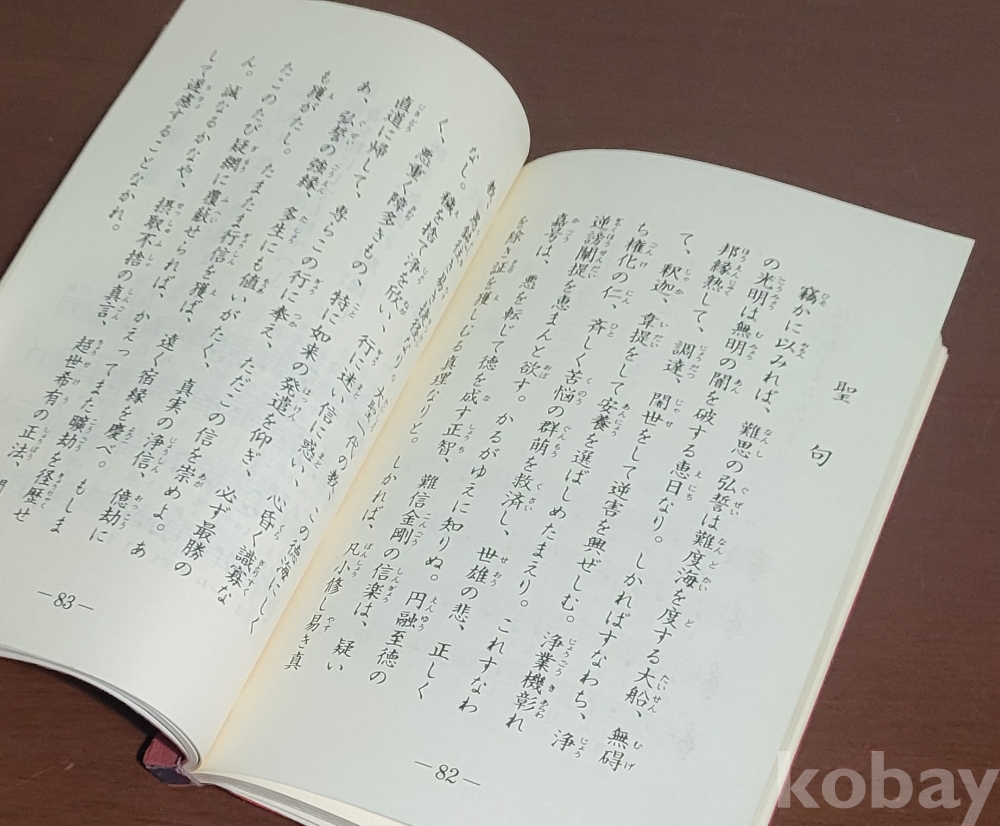 聖句
竊かに以みれば、難思の弘誓は難度海を度する大船、無碍
の光明は無明の闇を破する恵日なり。しかればすなわち、浄
邦縁熟して、調達、闍世をして逆害を興ぜしむ。浄業機彰れ
て、釈迦、韋提をして安養を選ばしめたまえり。これすなわ
ち権化の仁、斉しく苦悩の群萌を救済し、世雄の悲、正しく
逆謗闡提を恵まんと欲す。かるがゆえに知りぬ。円融至徳の
嘉号は、悪を転じて徳を成す正智、難信金剛の信楽は、疑い
を除き証を獲しむる真理なりと。しかれば、凡小修し易き真
なり。大聖一代の教、この徳海にしく
なし。穢を捨て浄を欣い、行に迷い信に惑い、心昏く識寡な
く、悪重く障多きもの、特に如来の発遣を仰ぎ、必ず最勝の
直道に帰して、専らこの行に奉え、ただこの信を崇めよ。あ
あ、弘誓の強縁、多生にも値いがたく、真実の浄信、億劫に
も獲がたし。たまたま行信を獲ば、遠く宿縁を慶べ。もしま
たこのたび疑網に覆蔽せられば、かえってまた曠劫を径歴せ
ん。誠なるかなや、摂取不捨の真言、超世希有の正法、聞
して遅慮することなかれ。
—82—
—83—
kobay